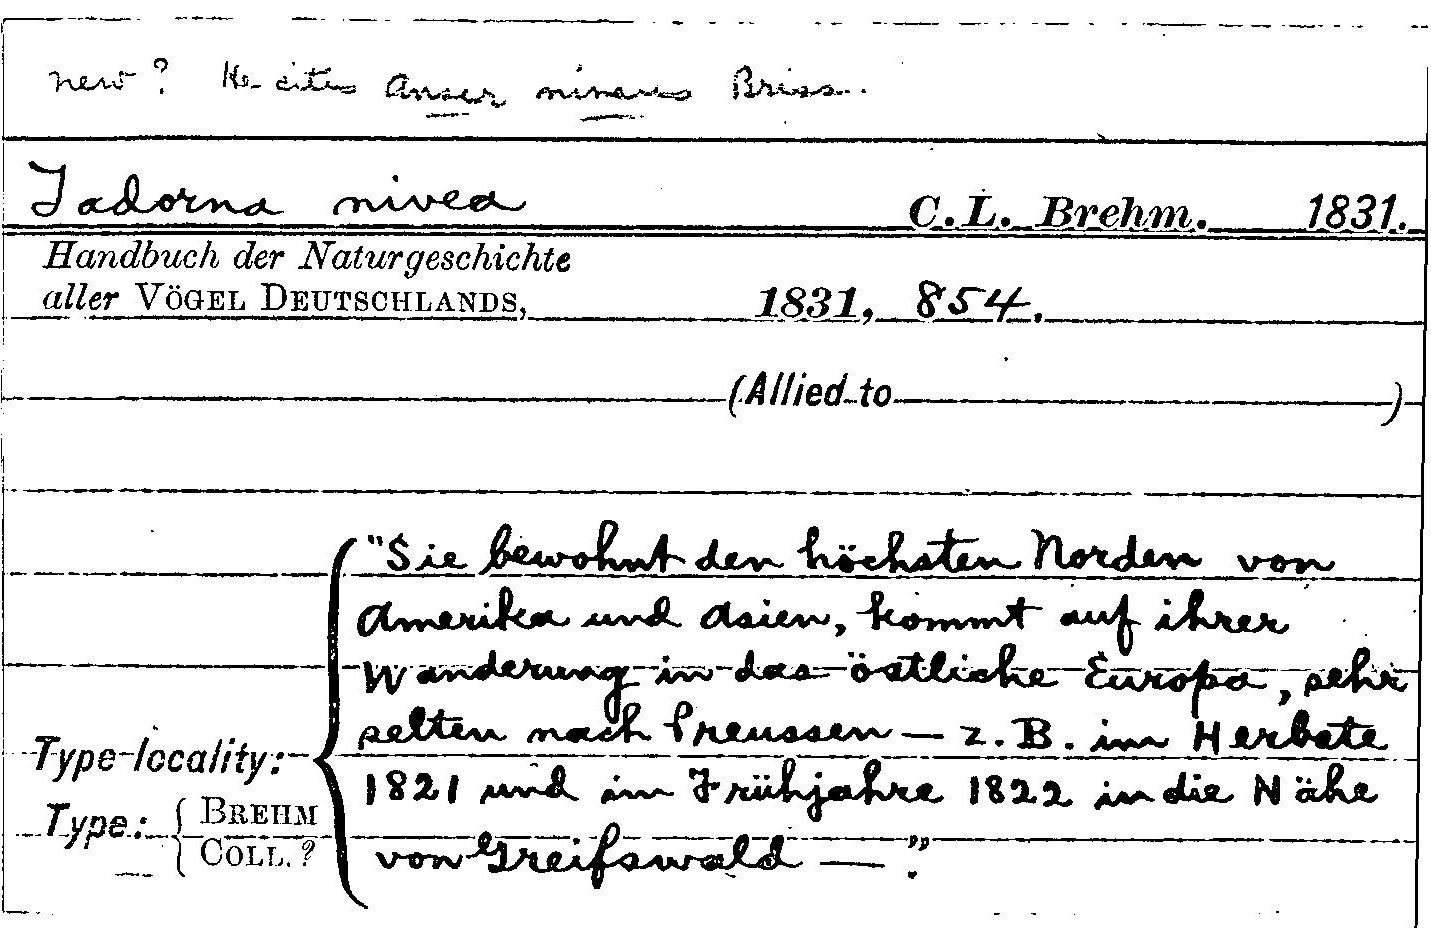 new? He cites Anser niveus Briss.
Tadorna nivea C.L. Brehm. 1831.
Handbuch der Naturgeschichte
aller VÖGEL DEUTSCHLANDS, 1831, 854.
(Allied to )
"Sie bewohnt den höchsten Norden von
Amerika und Asien, kommt auf ihrer
Wanderung in das östliche Europa, sehr
selten nach Preussen — z.B. im Herbste
1821 und im Frühjahre 1822 in die Nähe
von Greifswald —."
Type locality:
Type: { BREHM
COLL. ?